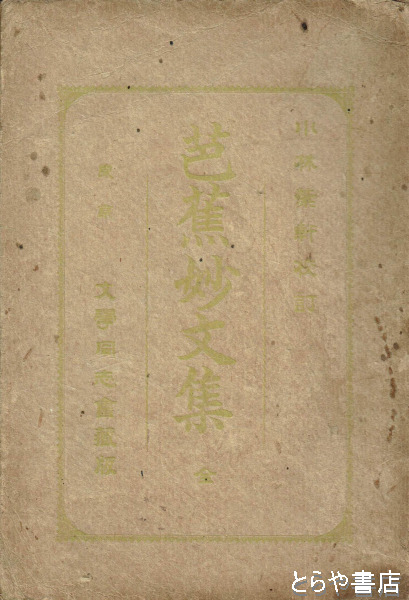 小林鶯里校訂
芭蕉妙文集 全
東京 文學同志會藏版
とらや書店